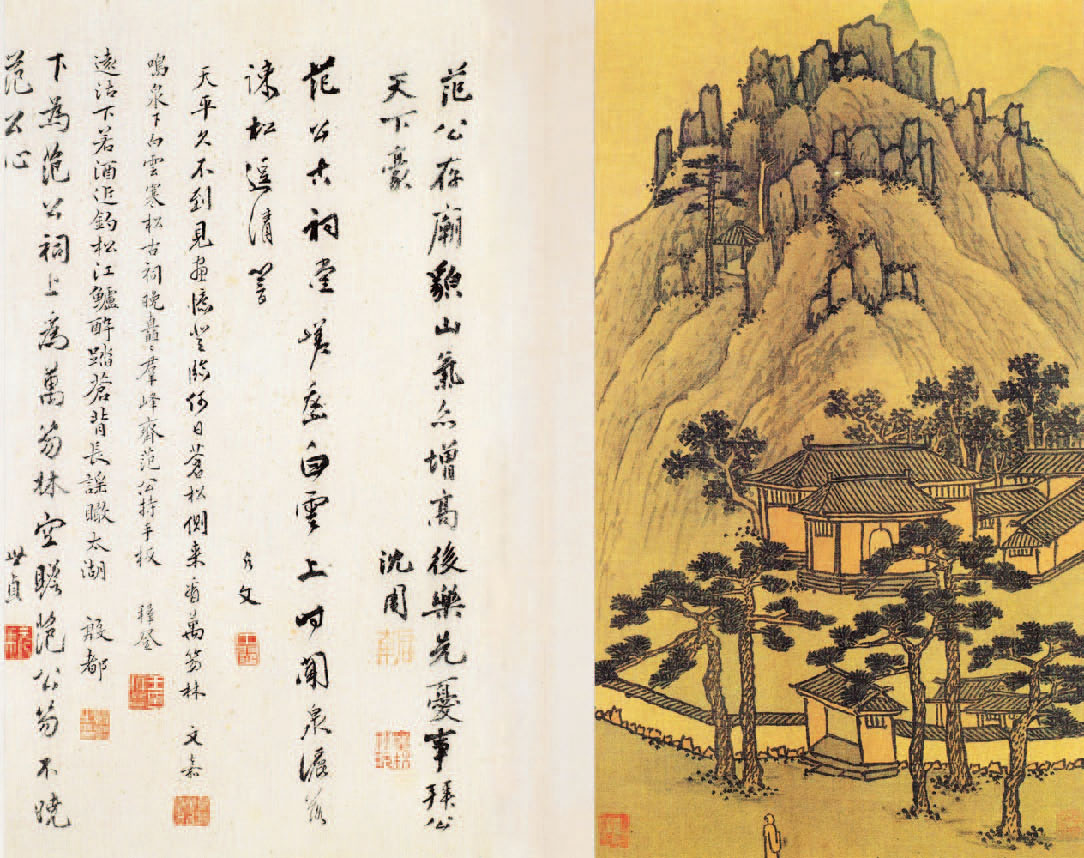 范公存廟貌山氣亦增高後樂先憂事拜公
天下豪 沈周
范公古祠堂嵯峨白雲上時聞泉瀑落
疎松遞清響 允文
天平久不到見畫憶登臨何日蒼松側來看萬笏林 文嘉
鳴泉下白雲寒松古祠晚矗矗羣峰齊范公持手板
遠沽下若酒近釣松江鱸醉踏蒼背長謠瞰太湖 殷都
下為范公祠上為萬笏林空瞻范公笏不曉
范公心 世貞